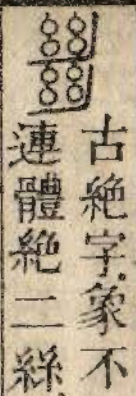 𢇍
古絕字象不
連體絕二絲